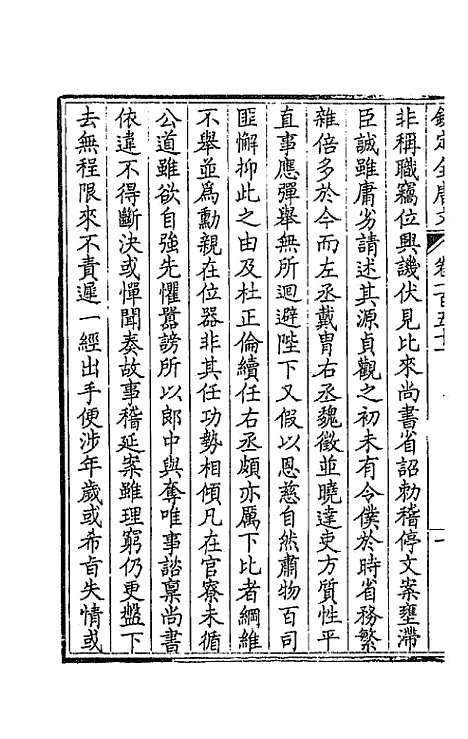 欽定全唐文 卷一百五十一 一
非稱職竊位興譏伏見比來尚書省詔勅稽停文案壅滯
臣誠雖庸劣請述其源貞觀之初未有令僕於時省務繁
雜倍多於今而左丞戴胄右丞魏徵並曉達吏方質性平
直事應彈舉無所迴避陛下又假以恩慈自然肅物百司
匪懈抑此之由及杜正倫續任右丞頗亦厲下比者綱維
不舉並爲勳親在位器非其任功勢相傾凡在官寮未循
公道雖欲自強先懼囂謗所以郎中與奪唯事諮稟尚書
依違不得斷決或憚聞奏故事稽延案雖理窮仍更盤下
去無程限來不責遲一經出手便涉年歲或希旨失情或